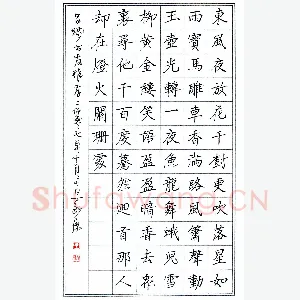 東風夜放花千樹更吹落星如
雨寶馬雕車香滿路鳳簫聲動
玉壺光轉一夜魚龍舞蛾兒雪
柳黃金縷笑語盈盈暗香去眾
裏尋他千百度驀然迴首那人
却在燈火闌珊處
Shufawang.CN